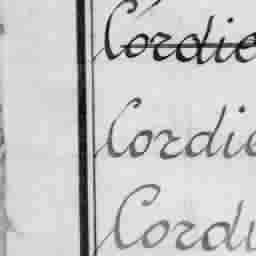 Cordie
Cordie
Cordi